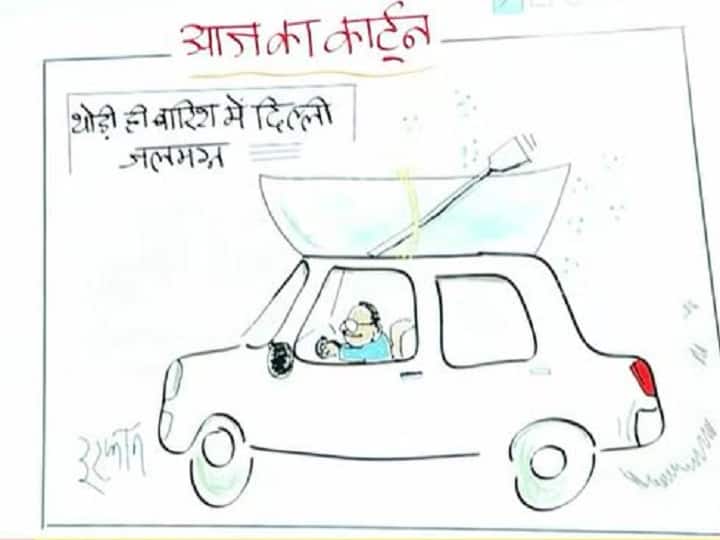 आज का कार्टून
थोड़ी ही बारिश में दिल्ली
जलमग्न
इरफ़ान